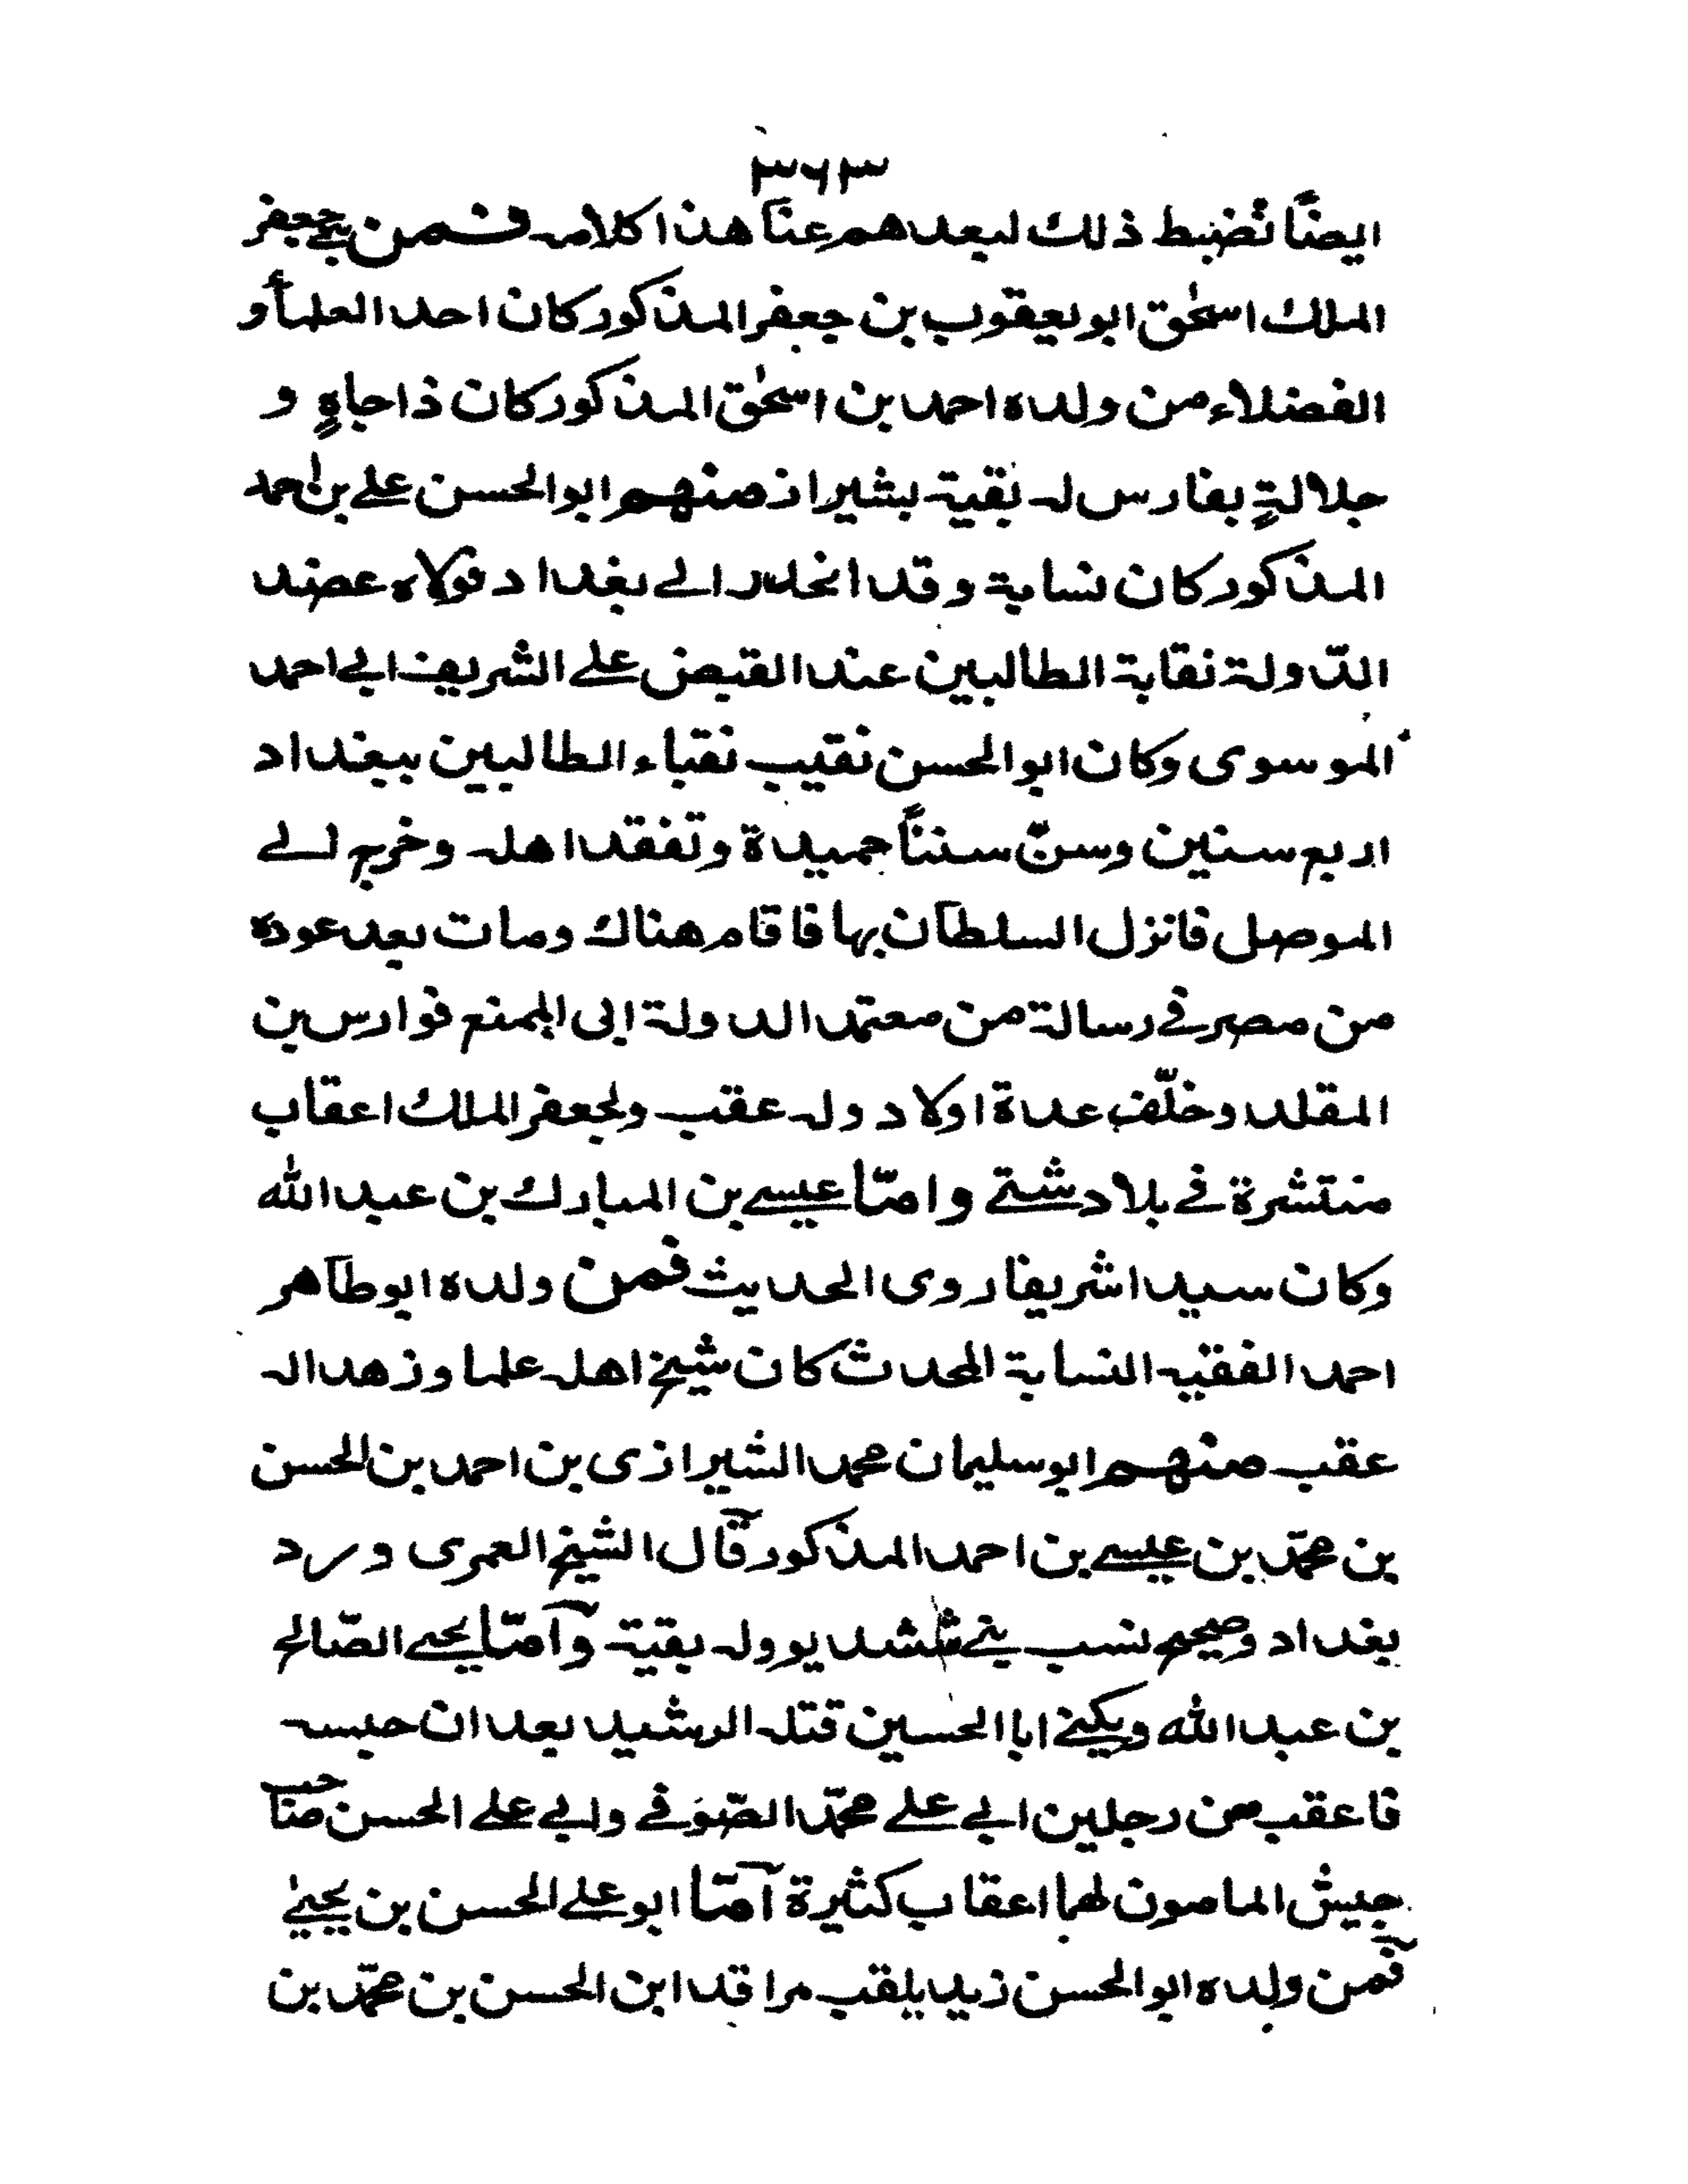 ٣٦٣
ايضًا نضبط ذلك لبعدهم عنّا هذا كلامه فمن بنى جعفر
الملك اسحٰق ابو يعقوب بن جعفر المذكور كان احد العلمأ و
الفضلاء من ولده احمد بن اسحٰق المذكور كان ذا جاهٍ و
جلالةٍ بفارس له بقية بشيراز منهم ابو الحسن على بن احمد
المذكور كان نسابة وقد انحدر الى بغداد فولاه عضد
الدّولة نقابة الطالبين عند القبض على الشريف ابى احمد
الموسوى وكان ابو الحسن نقيب نقباء الطالبين ببغداد
اربع سنين وسنّ سننًا حميدة وتفقد اهله وخرج الى
الموصل فانزل السلطان بها فاقام هناك ومات بعد عوده
من مصر فى رسالة من معتمد الدولة ابى المنع فوارس بن
المقلد وخلّف عدة اولاد وله عقب ولجعفر الملك اعقاب
منتشرة فى بلاد شتى وامّا عيسى بن المبارك بن عبد الله
وكان سيدا شريفا روى الحديث فمن ولده ابو طاهر
احمد الفقيه النسابة المحدث كان شيخ اهله علما وزهدا له
عقب منهم ابو سليمان محمد الشيرازى بن احمد بن الحسن
بن محمّد بن عيسى بن احمد المذكور قال الشيخ العمرى ورد
بغداد وصحح نسب بنى ششديو وله بقية وامّا يحيى الصّالح
بن عبد الله ويكنى ابا الحسين قتله الرشيد بعد ان حبسه
فاعقب من رجلين ابى على محمّد الصّوفى وابى على الحسن صاحب
جيش المامون لهما اعقاب كثيرة امّا ابو على الحسن بن يحيىٰ
فمن ولده ابو الحسن زيد يلقب مراقد ابن الحسن بن محمّد بن